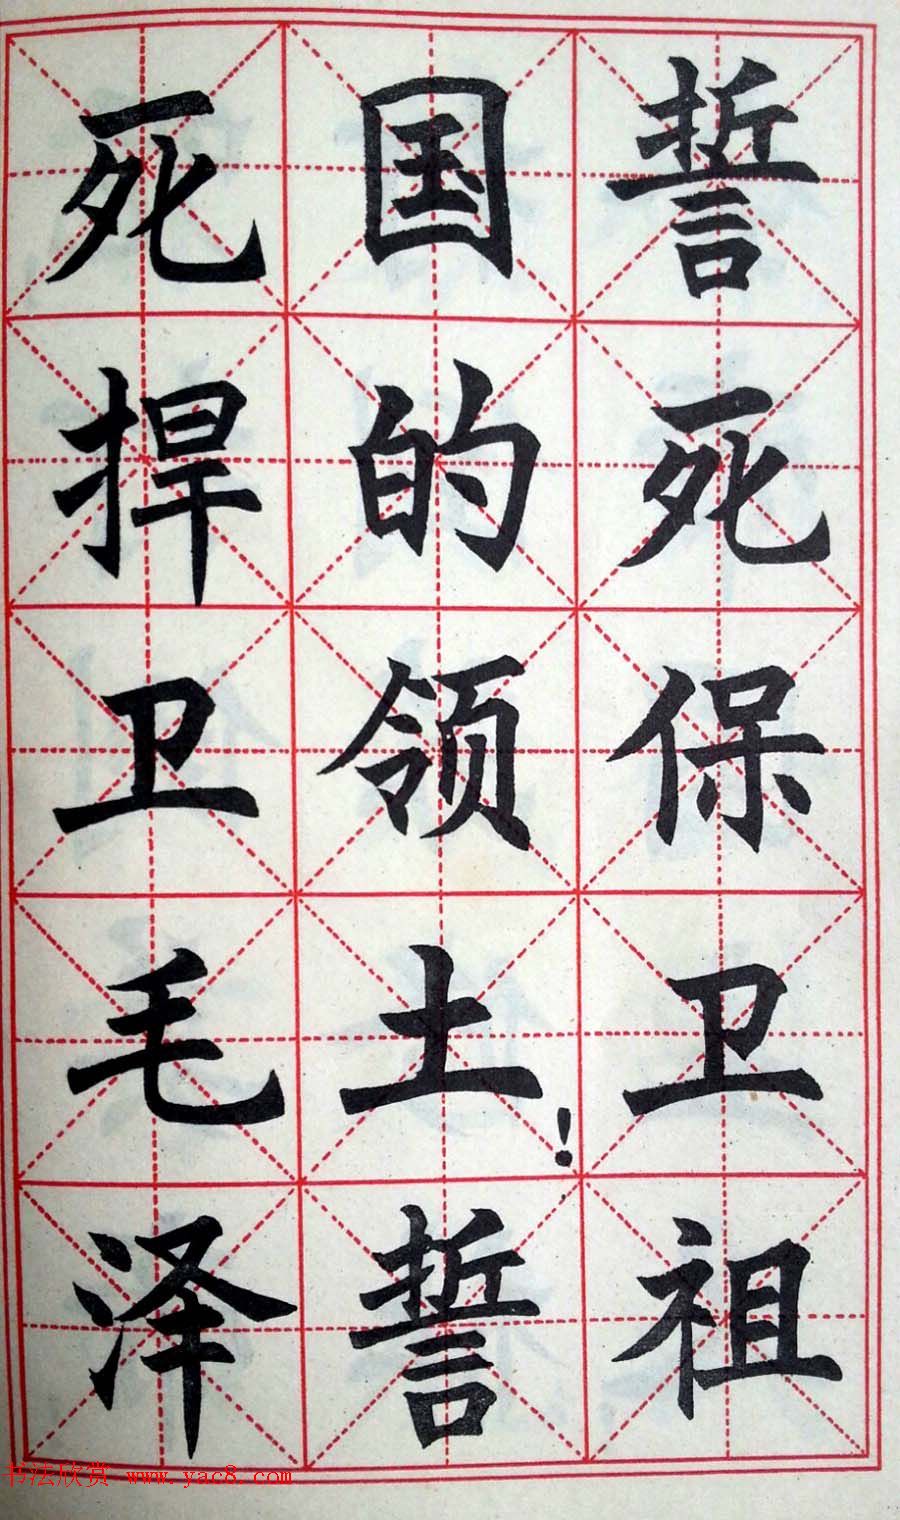 誓死保卫祖
国的领土！誓
死捍卫毛泽
书法欣赏 www.yac8.com